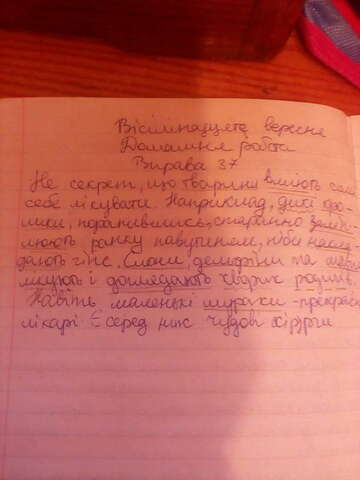 Вісімнадцяте вересня
Домашня робота
Вправа 37
Не секрет, що тварини вміють самі
себе лікувати. Наприклад, дикі
поранившись, старанно
ранку павутинням, ніби
дають гіпс. Слони, дельфіни та
лікують і доглядають хворих родичів.
Навіть маленькі мурахи - прекрасні
лікарі Є серед них чудові хірурги